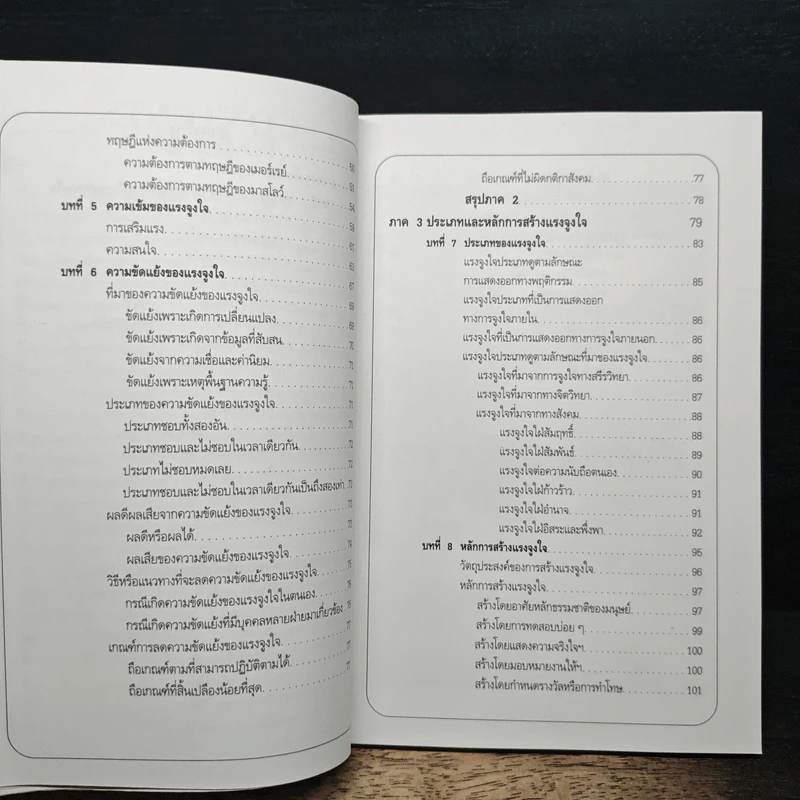 ทฤษฎีแห่งความต้องการ
ความต้องการตามทฤษฎีของเมอร์เรย์
ความต้องการตามทฤษฎีของมาสโลว์
บทที่ 5 ความเข้มของแรงจูงใจ
การเสริมแรง
ความสนใจ
บทที่ 6 ความขัดแย้งของแรงจูงใจ
ที่มาของความขัดแย้งของแรงจูงใจ
ขัดแย้งเพราะเกิดการเปลี่ยนแปลง
ขัดแย้งเพราะเกิดจากข้อมูลที่สับสน
ขัดแย้งจากความเชื่อและค่านิยม
ขัดแย้งเพราะเหตุพื้นฐานความรู้
ประเภทของความขัดแย้งของแรงจูงใจ
ประเภทชอบทั้งสองอัน
ประเภทชอบและไม่ชอบในเวลาเดียวกัน
ประเภทไม่ชอบหมดเลย
ประเภทชอบและไม่ชอบในเวลาเดียวกันเป็นถึงสองเท่า
ผลดีผลเสียจากความขัดแย้งของแรงจูงใจ
ผลดีหรือผลได้
ผลเสียของความขัดแย้งของแรงจูงใจ
วิธีหรือแนวทางที่จะลดความขัดแย้งของแรงจูงใจ
กรณีเกิดความขัดแย้งของแรงจูงใจในตนเอง
กรณีเกิดความขัดแย้งที่มีบุคคลหลายฝ่ายมาเกี่ยวข้อง
เกณฑ์การลดความขัดแย้งของแรงจูงใจ
ถือเกณฑ์ตามที่สามารถปฏิบัติตามได้
ถือเกณฑ์ที่สิ้นเปลืองน้อยที่สุด
ถือเกณฑ์ที่ไม่ผิดกติกาสังคม 77
สรุปภาค 2 78
ภาค 3 ประเภทและหลักการสร้างแรงจูงใจ 79
บทที่ 7 ประเภทของแรงจูงใจ 83
แรงจูงใจประเภทดูตามลักษณะ
การแสดงออกทางพฤติกรรม 85
แรงจูงใจประเภทที่เป็นการแสดงออก
ทางการจูงใจภายใน 86
แรงจูงใจที่เป็นการแสดงออกทางการจูงใจภายนอก 86
แรงจูงใจประเภทดูตามลักษณะที่มาของแรงจูงใจ 86
แรงจูงใจที่มาจากการจูงใจทางสรีรวิทยา 86
แรงจูงใจที่มาจากทางจิตวิทยา 87
แรงจูงใจที่มาจากทางสังคม 88
แรงจูงใจใฝ่สัมฤทธิ์ 88
แรงจูงใจใฝ่สัมพันธ์ 89
แรงจูงใจต่อความนับถือตนเอง 90
แรงจูงใจใฝ่ก้าวร้าว 91
แรงจูงใจใฝ่อำนาจ 91
แรงจูงใจใฝ่อิสระและพึ่งพา 92
บทที่ 8 หลักการสร้างแรงจูงใจ 95
วัตถุประสงค์ของการสร้างแรงจูงใจ 96
หลักการสร้างแรงจูงใจ 97
สร้างโดยอาศัยหลักธรรมชาติของมนุษย์ 97
สร้างโดยการทดสอบบ่อย ๆ 99
สร้างโดยแสดงความจริงใจฯ 100
สร้างโดยมอบหมายงานให้ฯ 100
สร้างโดยกำหนดรางวัลหรือการทำโทษ 101